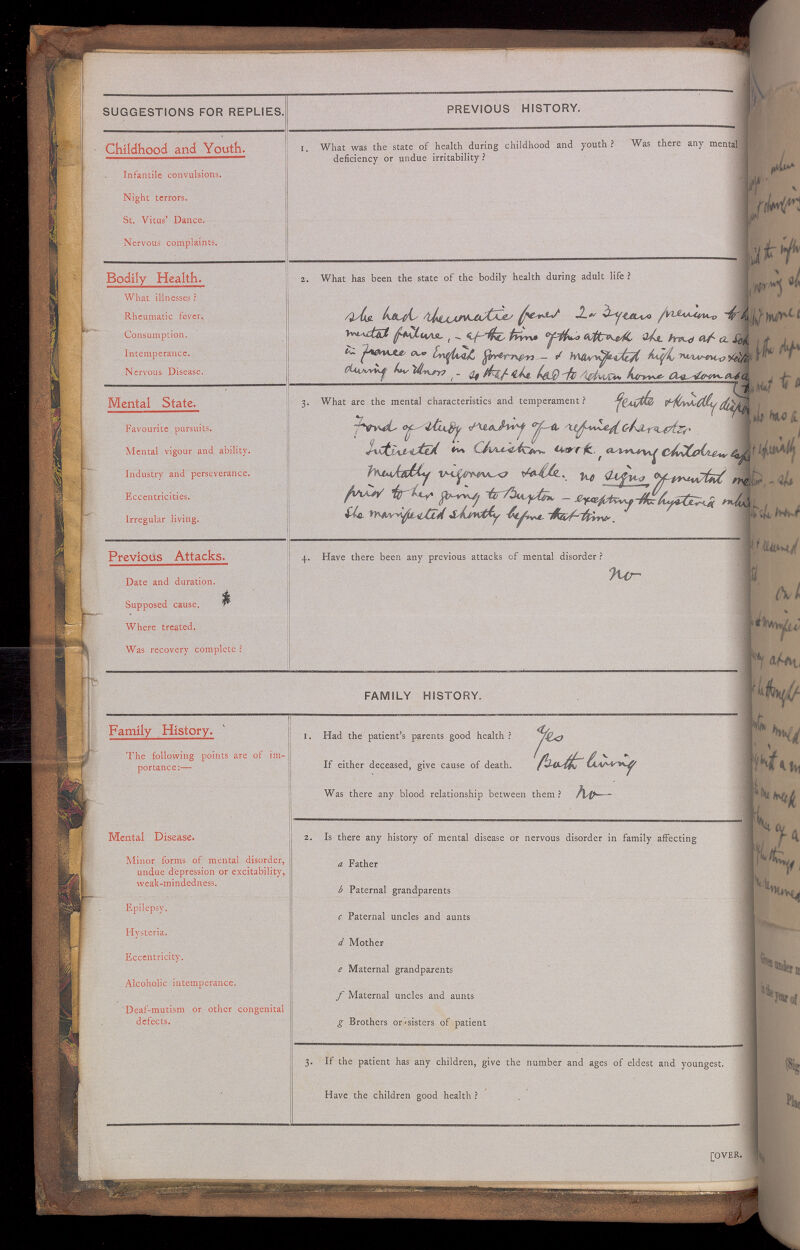 SUGGESTIONS FOR REPLIES.
PREVIOUS HISTORY.
Childhood and Youth.
Infantile convulsions.
Night terrors.
St. Vitus' Dance.
Nervous complaints.
1. What was the state of health during childhood and youth? Was there any mental
deficiency or undue irritability?
Bodily Health.
What illnesses?
Rheumatic fever.
Consumption.
Intemperance.
Nervous Disease.
2. What has been the state of the bodily health during adult life?
She had rheumatic fever 2 or 3 years previous to
mental failure, - at the time of this attack she was at a
in France as English governess - & manifested high nervous
during her illness, - so that she had to return home as soon as
Mental State.
Favourite pursuits.
Mental vigour and ability.
Industry and perseverance.
Eccentricities.
Irregular living.
3. What are the mental characteristics and temperament? Gentle & kindly
Fond of study & reading of a refined character.
Interested in Christian work, among children
Mentally vigorous & able. no signs of mental
prior to her going to Buxton - excepting the hysteria
She manifested shortly before that time.
Previous Attacks.
Date and duration.
Supposed cause.
Where treated.
Was recovery complete?
4. Have there been any previous attacks of mental disorder?
No
FAMILY HISTORY.
Family History.
The following points are of im-
portance:—
1. Had the patient's parents good health? Yes
If either deceased, give cause of death. Both living
Was there any blood relationship between them? No
Mental Disease.
Minor forms of mental disorder,
undue depression or excitability,
weak-mindedness.
Epilepsy.
Hysteria.
Eccentricity.
Alcoholic intemperance.
Deaf-mutism or other congenital
defects.
2. Is there any history of mental disease or nervous disorder in family affecting
a Father
b Paternal grandparents
c Paternal uncles and aunts
d Mother
e Maternal grandparents
f Maternal uncles and aunts
g Brothers or sisters of patient
3. If the patient has any children, give the number and ages of eldest and youngest.
Have the children good health?
[OVER.